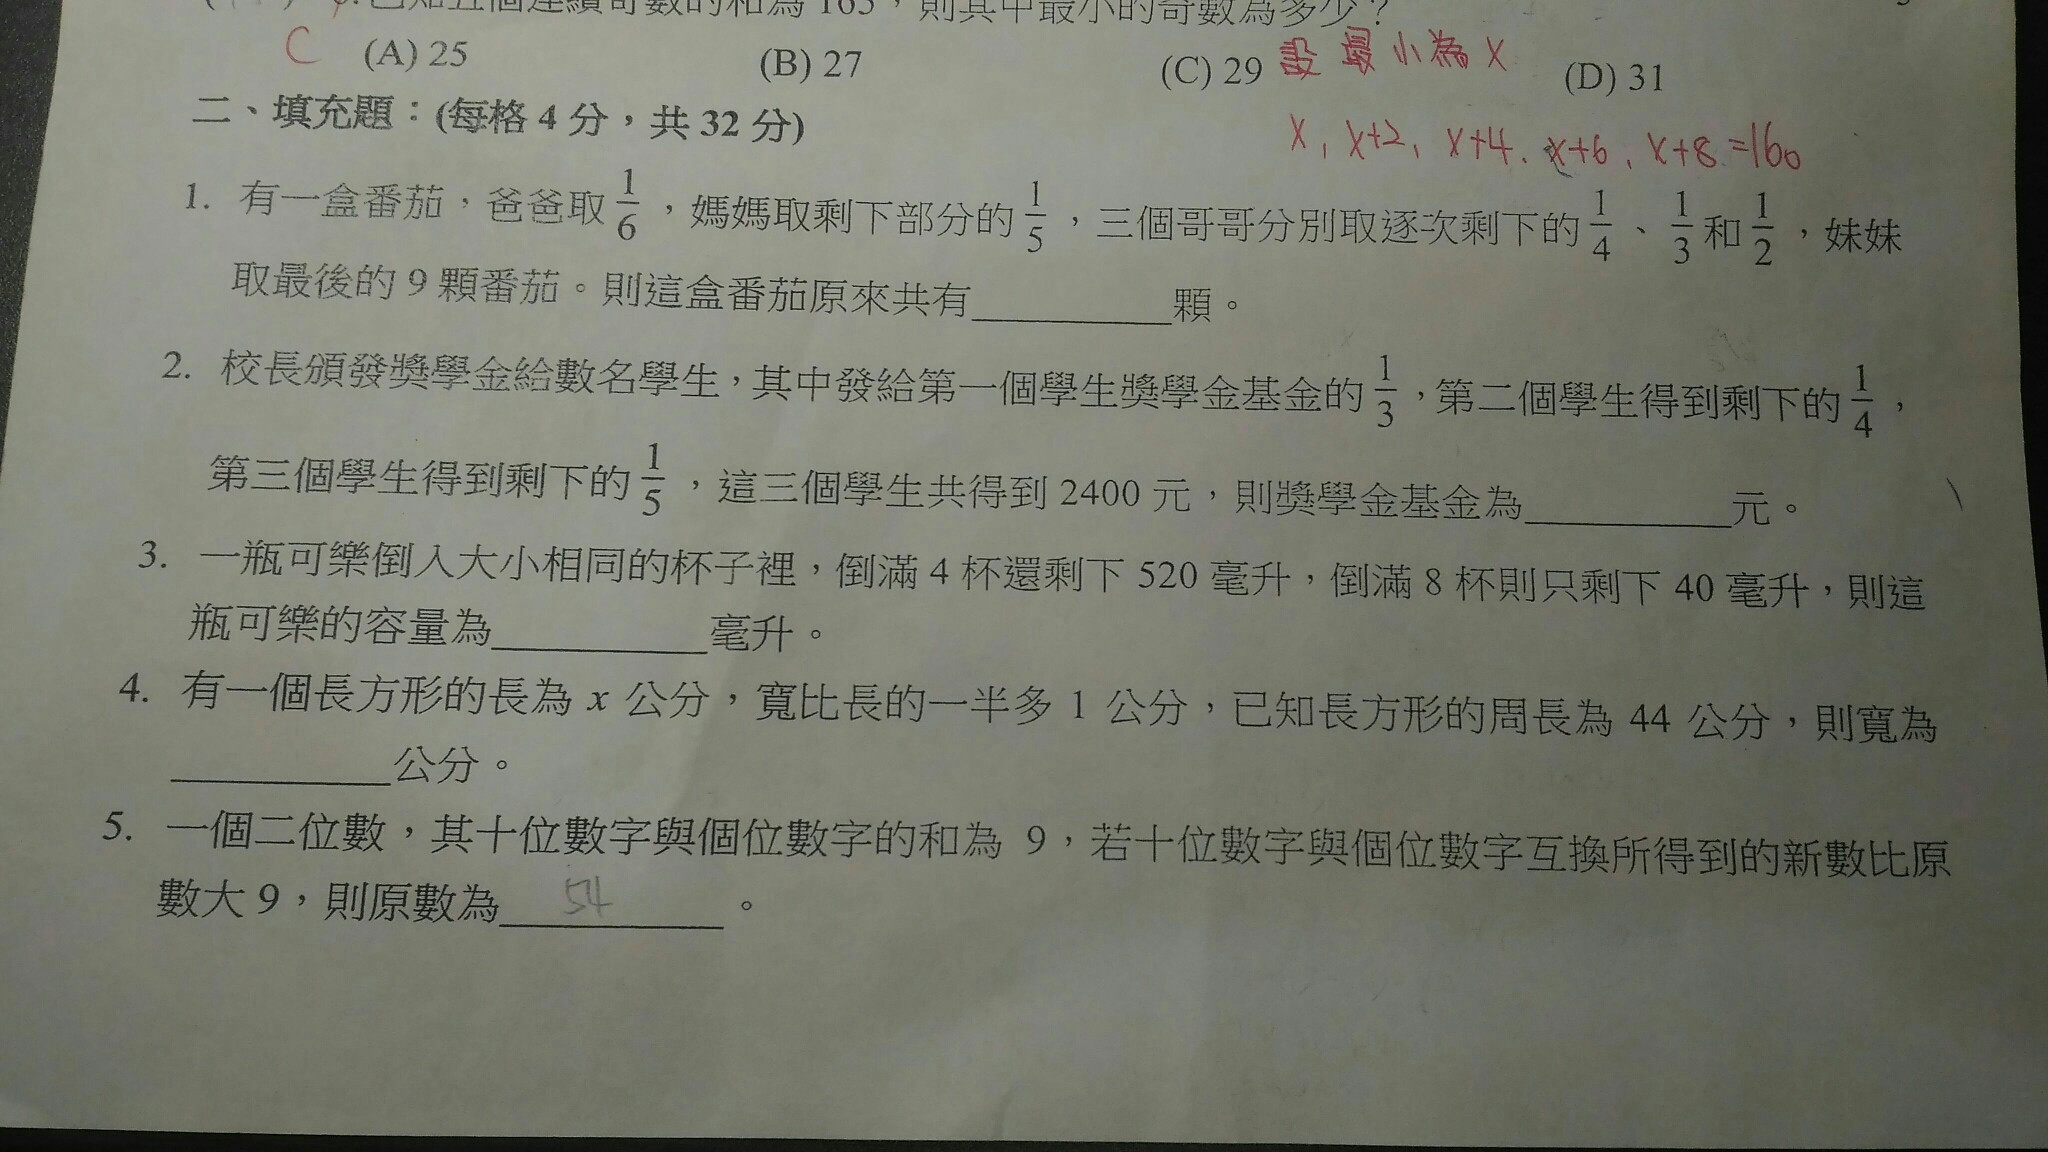 已知五個連續奇數的和為 165，則其中最小的奇數為多少？
C (A) 25 (B) 27 (C) 29 設最小為x (D) 31
二、填充題：(每格 4 分，共 32 分)
x, x+2, x+4, x+6, x+8=160
1. 有一盒番茄，爸爸取1/6，媽媽取剩下部分的1/5，三個哥哥分別取逐次剩下的1/4、1/3和1/2，妹妹
取最後的 9 顆番茄。則這盒番茄原來共有__________顆。
2. 校長頒發獎學金給數名學生，其中發給第一個學生獎學金基金的1/3，第二個學生得到剩下的1/4，
第三個學生得到剩下的1/5，這三個學生共得到 2400 元，則獎學金基金為__________元。
3. 一瓶可樂倒入大小相同的杯子裡，倒滿 4 杯還剩下 520 毫升，倒滿 8 杯則只剩下 40 毫升，則這
瓶可樂的容量為__________毫升。
4. 有一個長方形的長為 x 公分，寬比長的一半多 1 公分，已知長方形的周長為 44 公分，則寬為
__________公分。
5. 一個二位數，其十位數字與個位數字的和為 9，若十位數字與個位數字互換所得到的新數比原
數大 9，則原數為 54 。